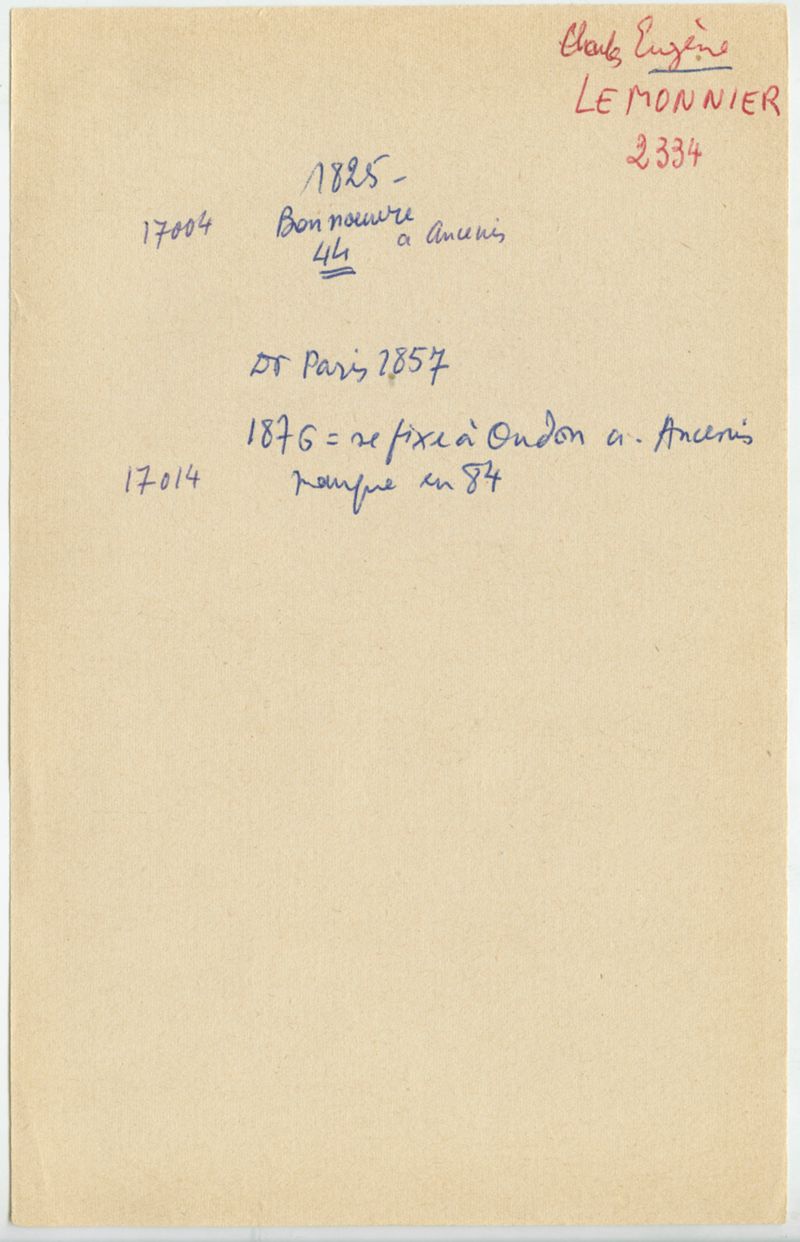 Charles Eugène
LEMONNIER
2334
1825-
17004 Bonnoeuvre
a Ancenis
44
Dr Paris 1857
1876 = se fixe à Oudon a. Ancenis
17014 manque en 84